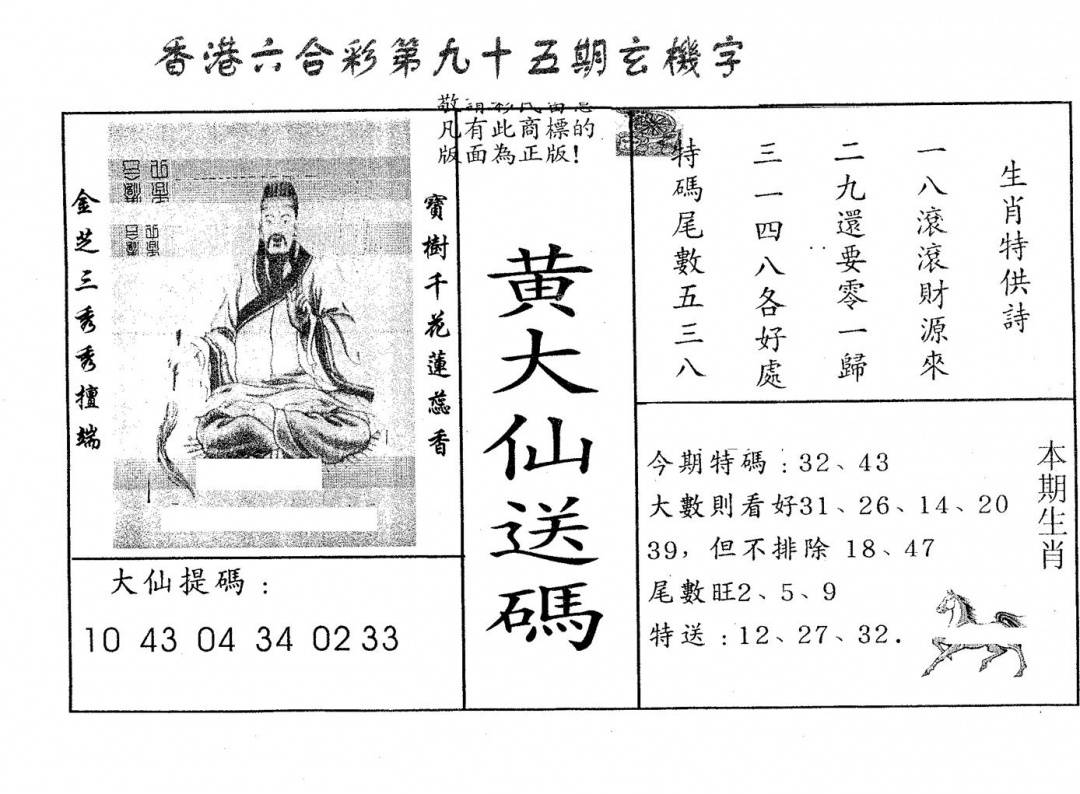 香港六合彩第九十五期玄機字
敬請彩民留意
凡有此商標的
版面為正版!
生肖特供詩
一八滾滾財源來
二九還要零一歸
三一四八各好處
特碼尾數五三八
寶樹千花蓮蕊香
金芝三秀秀擅端
黃大仙送碼
大仙提碼:
10 43 04 34 02 33
今期特碼:32、43
大數則看好31、26、14、20
39,但不排除 18、47
尾數旺2、5、9
特送:12、27、32.
本期生肖